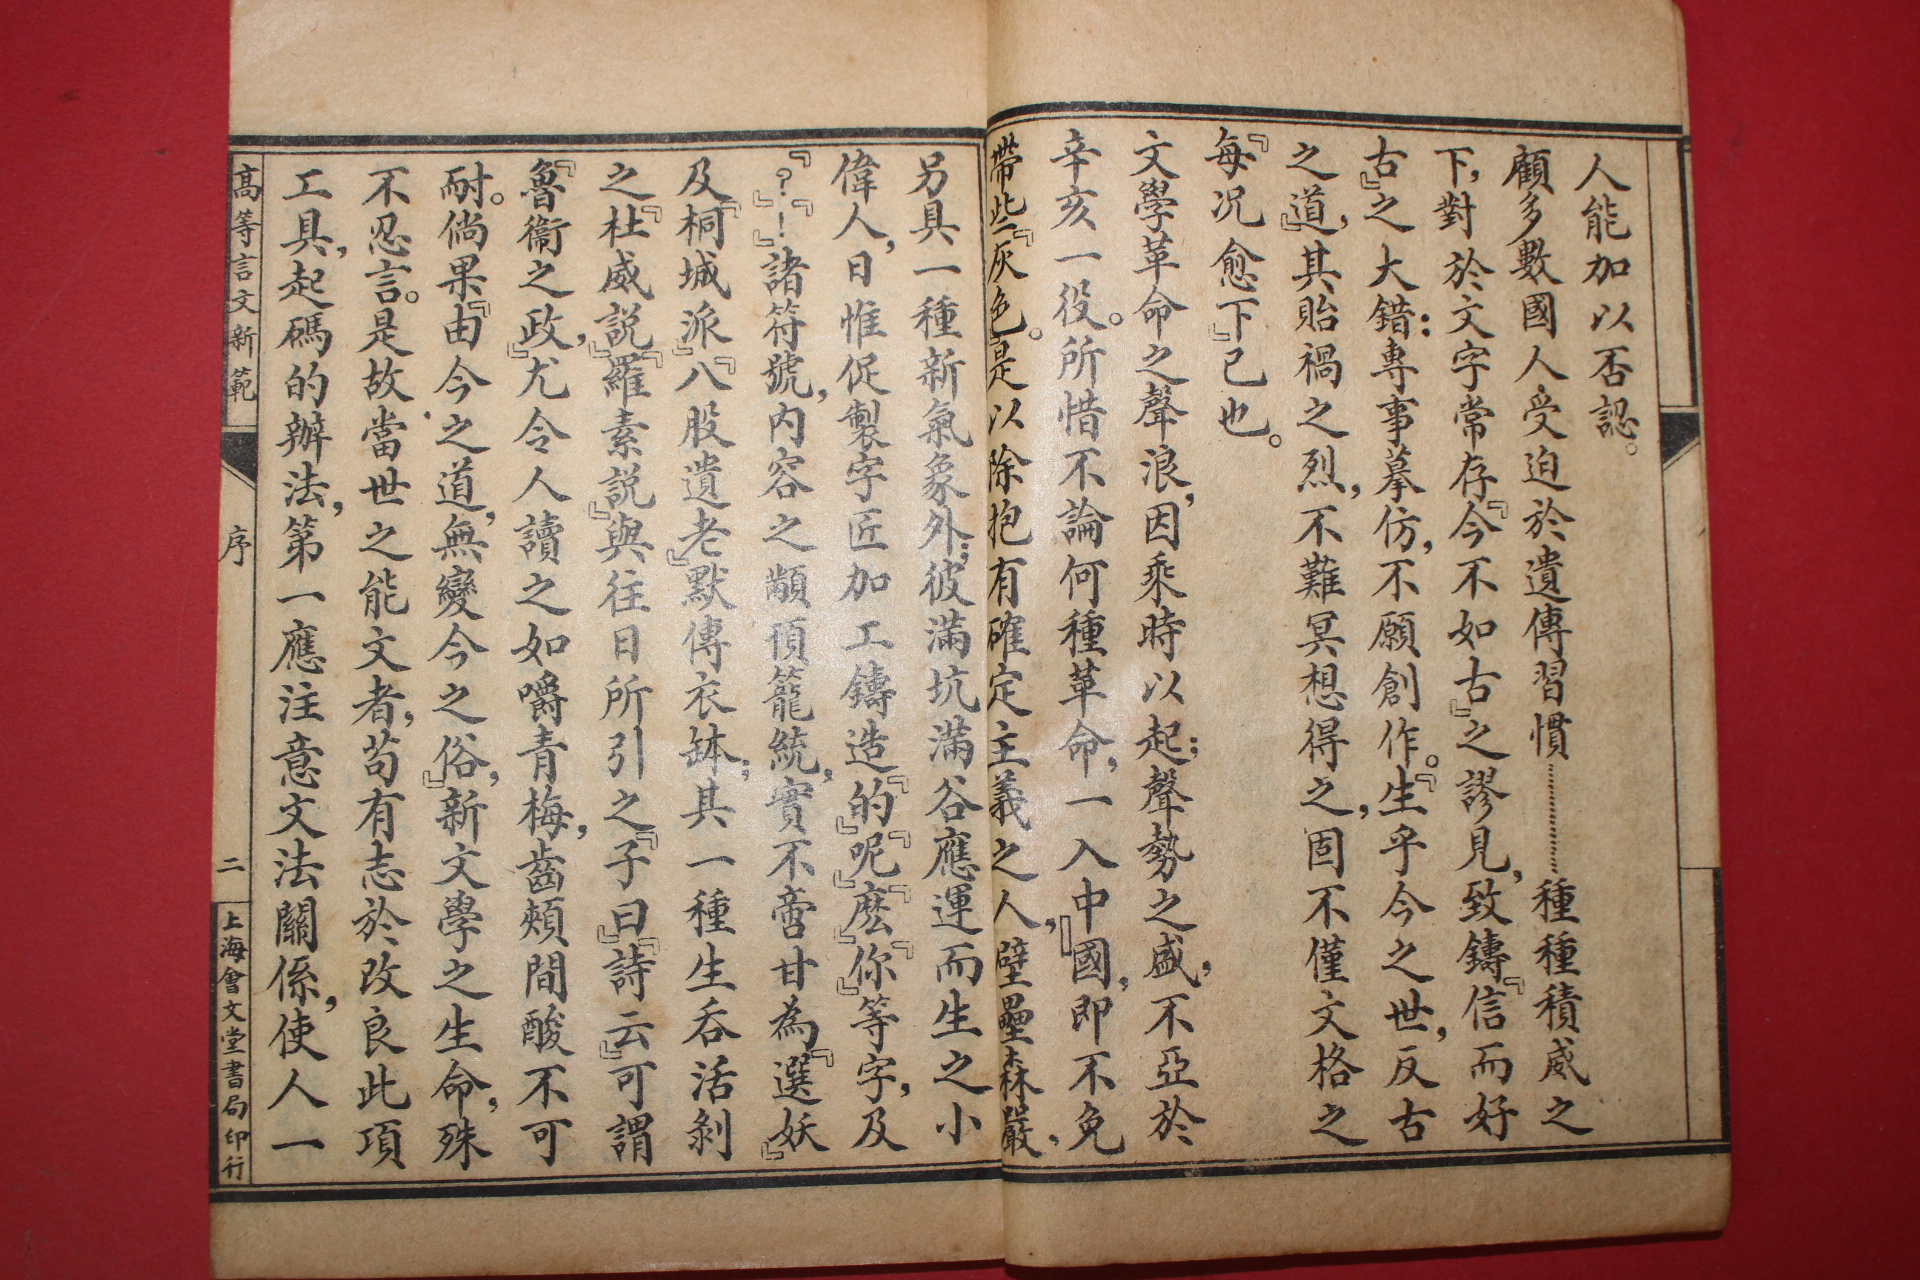 人能加以否認。
顧多數國人受迫於遺傳習慣…………種種積威之
下，對於文字常存『今不如古』之謬見，致鑄『信而好
古』之大錯：專事摹仿，不願創作。『生乎今之世，反古
之道』，其貽禍之烈，不難冥想得之，固不僅文格之
『每况愈下』已也。
文學革命之聲浪，因乘時以起；聲勢之盛，不亞於
辛亥一役。所惜不論何種革命，一入中國，即不免
帶些『灰色』。是以除抱有確定主義之人，壁壘森嚴，
另具一種新氣象外；彼滿坑滿谷應運而生之小
偉人，日惟促製字匠加工鑄造『的』『呢』『麽』『你』等字，及
『？』『！』諸符號，內容之顢頇籠統，實不啻甘為『選妖』
及『桐城派』『八股遺老』默傳衣缽；其一種生吞活剝
之『杜威説』『羅素説』與往日所引之『子曰』『詩云』可謂
『魯衞之政』，尤令人讀之如嚼青梅，齒頰間酸不可
耐。倘果『由今之道，無變今之俗』，新文學之生命，殊
不忍言。是故當世之能文者，苟有志於改良此項
工具，起碼的辦法，第一應注意文法關係，使人一
高等言文新範
序
二
上海會文堂書局印行